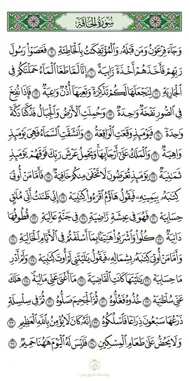 سُورَةُ الْحَاقَّةِ
وَجَاءَ فِرْعَوْنُ وَمَن قَبْلَهُ وَالْمُؤْتَفِكَاتُ بِالْخَاطِئَةِ ۝ فَعَصَوْا رَسُولَ
رَبِّهِمْ فَأَخَذَهُمْ أَخْذَةً رَّابِيَةً ۝ إِنَّا لَمَّا طَغَا الْمَاءُ حَمَلْنَاكُمْ فِي
الْجَارِيَةِ ۝ لِنَجْعَلَهَا لَكُمْ تَذْكِرَةً وَتَعِيَهَا أُذُنٌ وَاعِيَةٌ ۝ فَإِذَا نُفِخَ
فِي الصُّورِ نَفْخَةٌ وَاحِدَةٌ ۝ وَحُمِلَتِ الْأَرْضُ وَالْجِبَالُ فَدُكَّتَا دَكَّةً
وَاحِدَةً ۝ فَيَوْمَئِذٍ وَقَعَتِ الْوَاقِعَةُ ۝ وَانشَقَّتِ السَّمَاءُ فَهِيَ يَوْمَئِذٍ
وَاهِيَةٌ ۝ وَالْمَلَكُ عَلَىٰ أَرْجَائِهَا وَيَحْمِلُ عَرْشَ رَبِّكَ فَوْقَهُمْ يَوْمَئِذٍ
ثَمَانِيَةٌ ۝ يَوْمَئِذٍ تُعْرَضُونَ لَا تَخْفَىٰ مِنكُمْ خَافِيَةٌ ۝ فَأَمَّا مَنْ أُوتِيَ
كِتَابَهُ بِيَمِينِهِ فَيَقُولُ هَاؤُمُ اقْرَءُوا كِتَابِيَهْ ۝ إِنِّي ظَنَنتُ أَنِّي مُلَاقٍ
حِسَابِيَهْ ۝ فَهُوَ فِي عِيشَةٍ رَّاضِيَةٍ ۝ فِي جَنَّةٍ عَالِيَةٍ ۝ قُطُوفُهَا
دَانِيَةٌ ۝ كُلُوا وَاشْرَبُوا هَنِيئًا بِمَا أَسْلَفْتُمْ فِي الْأَيَّامِ الْخَالِيَةِ ۝
وَأَمَّا مَنْ أُوتِيَ كِتَابَهُ بِشِمَالِهِ فَيَقُولُ يَا لَيْتَنِي لَمْ أُوتَ كِتَابِيَهْ ۝ وَلَمْ أَدْرِ
مَا حِسَابِيَهْ ۝ يَا لَيْتَهَا كَانَتِ الْقَاضِيَةَ ۝ مَا أَغْنَىٰ عَنِّي مَالِيَهْ ۝ هَلَكَ
عَنِّي سُلْطَانِيَهْ ۝ خُذُوهُ فَغُلُّوهُ ۝ ثُمَّ الْجَحِيمَ صَلُّوهُ ۝ ثُمَّ فِي سِلْسِلَةٍ
ذَرْعُهَا سَبْعُونَ ذِرَاعًا فَاسْلُكُوهُ ۝ إِنَّهُ كَانَ لَا يُؤْمِنُ بِاللَّهِ الْعَظِيمِ ۝ وَلَا يَحُضُّ
عَلَىٰ طَعَامِ الْمِسْكِينِ ۝ فَلَيْسَ لَهُ الْيَوْمَ هَاهُنَا حَمِيمٌ ۝